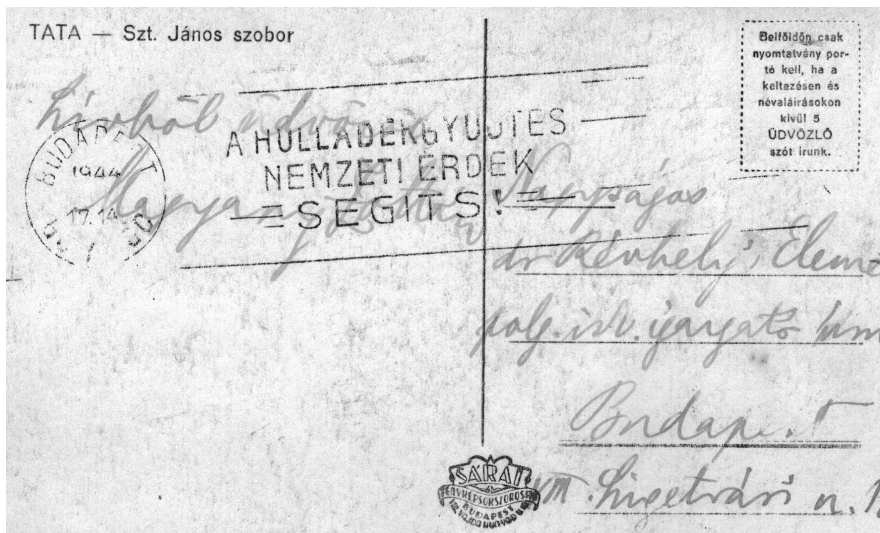 TATA — Szt. János szobor
Belföldön csak
nyomtatvány por-
tó kell, ha a
keltezésen és
névaláirásokon
kivül 5
ÜDVÖZLŐ
szót irunk.
BUDAPEST
1944
17.14
A HULLADÉKGYÜJTÉS
NEMZETI ÉRDEK
SEGITS!
Nagyságos
dr Révhelyi Elemér
polg. isk. igazgató
Budapest
VIII. Szigetvári u.
SÁRAI
FÉNYKÉPSOKSZOROSÍTÓ
BUDAPEST